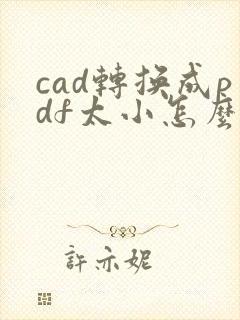 cad轉換成p
df太小怎麼
許亦妮